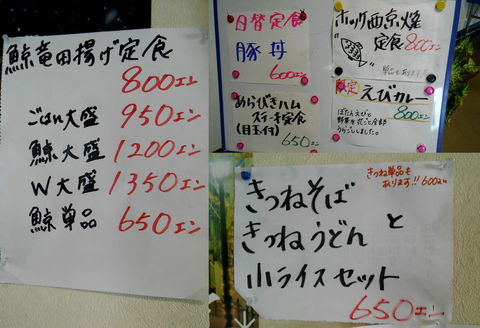 鯨竜田揚げ定食
800エン
ごはん大盛 950エン
鯨大盛 1200エン
W大盛 1350エン
鯨単品 650エン
日替定食
豚丼
600エン
ホッケ西京焼
定食 800エン
単品もあります!
あらびきハム
ステーキ定食
(目玉付) 650エン
限定 えびカレー
800エン
ぼたんえびと
野菜を
きつね単品も
あります!! 600エン
きつねそば
きつねうどん と
小ライスセット
650エン